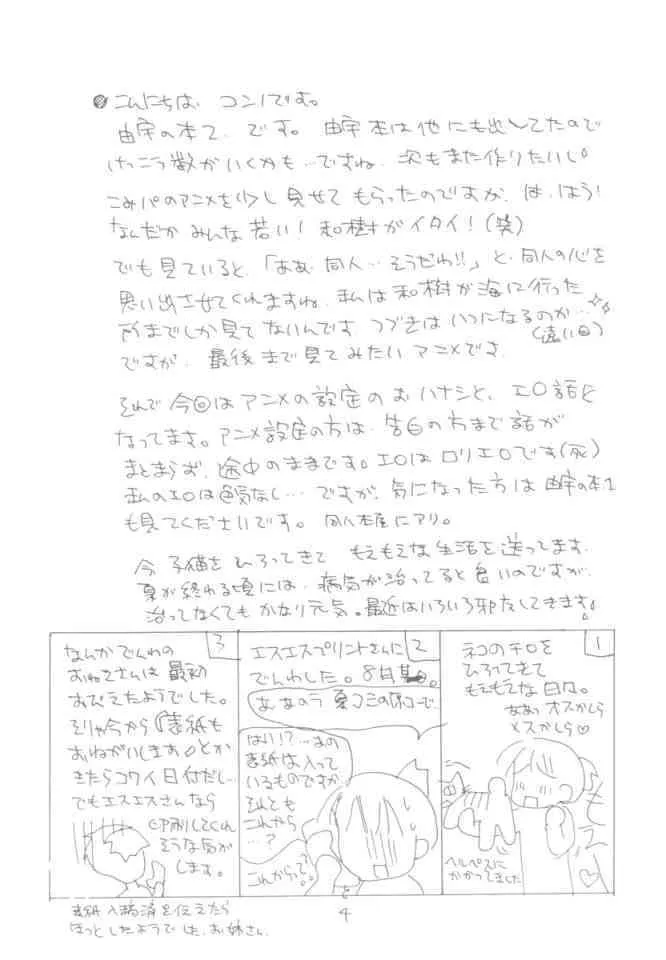 こんにちは、コンノです。
由宇の本2、です。由宇本は他にも出してたので
けっこう数がいくかも…ですね、次もまた作りたいし。
こみパのアニメを少し見せてもらったのですが、は、はう！
なんだかみんな若い！和樹がイタイ！(笑)
でも見ていると、「ああ、同人…そうだわ!!」と、同人の心を
思い出させてくれますね。私は和樹が海に行った
所までしか見てないんです。つづきはいつになるのか…
(遠い目)
ですが、最後まで見てみたいアニメです。
それで今回はアニメの設定のおハナシと、エロ話と
なってます。アニメ設定の方は、告白の方まで話が
まとまらず、途中のままです。エロはロリエロです(死)
私のエロは色気なし…ですが、気になった方は由宇の本1
も見てくださいです。同人本屋にアリ。
今子猫をひろってきてもえもえな生活を送ってます。
夏が終わる頃には、病気が治ってると良いのですが、
治ってなくてもかなり元気。最近はいろいろ邪友してきます。
1
ネコのチロを
ひろってきて
もえもえな日々。
ああっオスかしら
メスかしら♡
もえ
ヘルペスに
かかってました
2
エスエスプリントさんに
でんわした。8月某日。
あ、あのう夏コミの原コーで
はい!?…あの
表紙は入って
いるものですか
それとも
これから
…?
これからって?
3
なんかでんわの
おねえさんは最初
おびえたようでした。
そりゃ今から『表紙も
おねがいします』とか
きたらコワイ日付だし…
でもエスエスさんなら
印刷してくれ
そうな気が
します。
表紙入稿済を伝えたら
ほっとしたようでした、お姉さん。
4